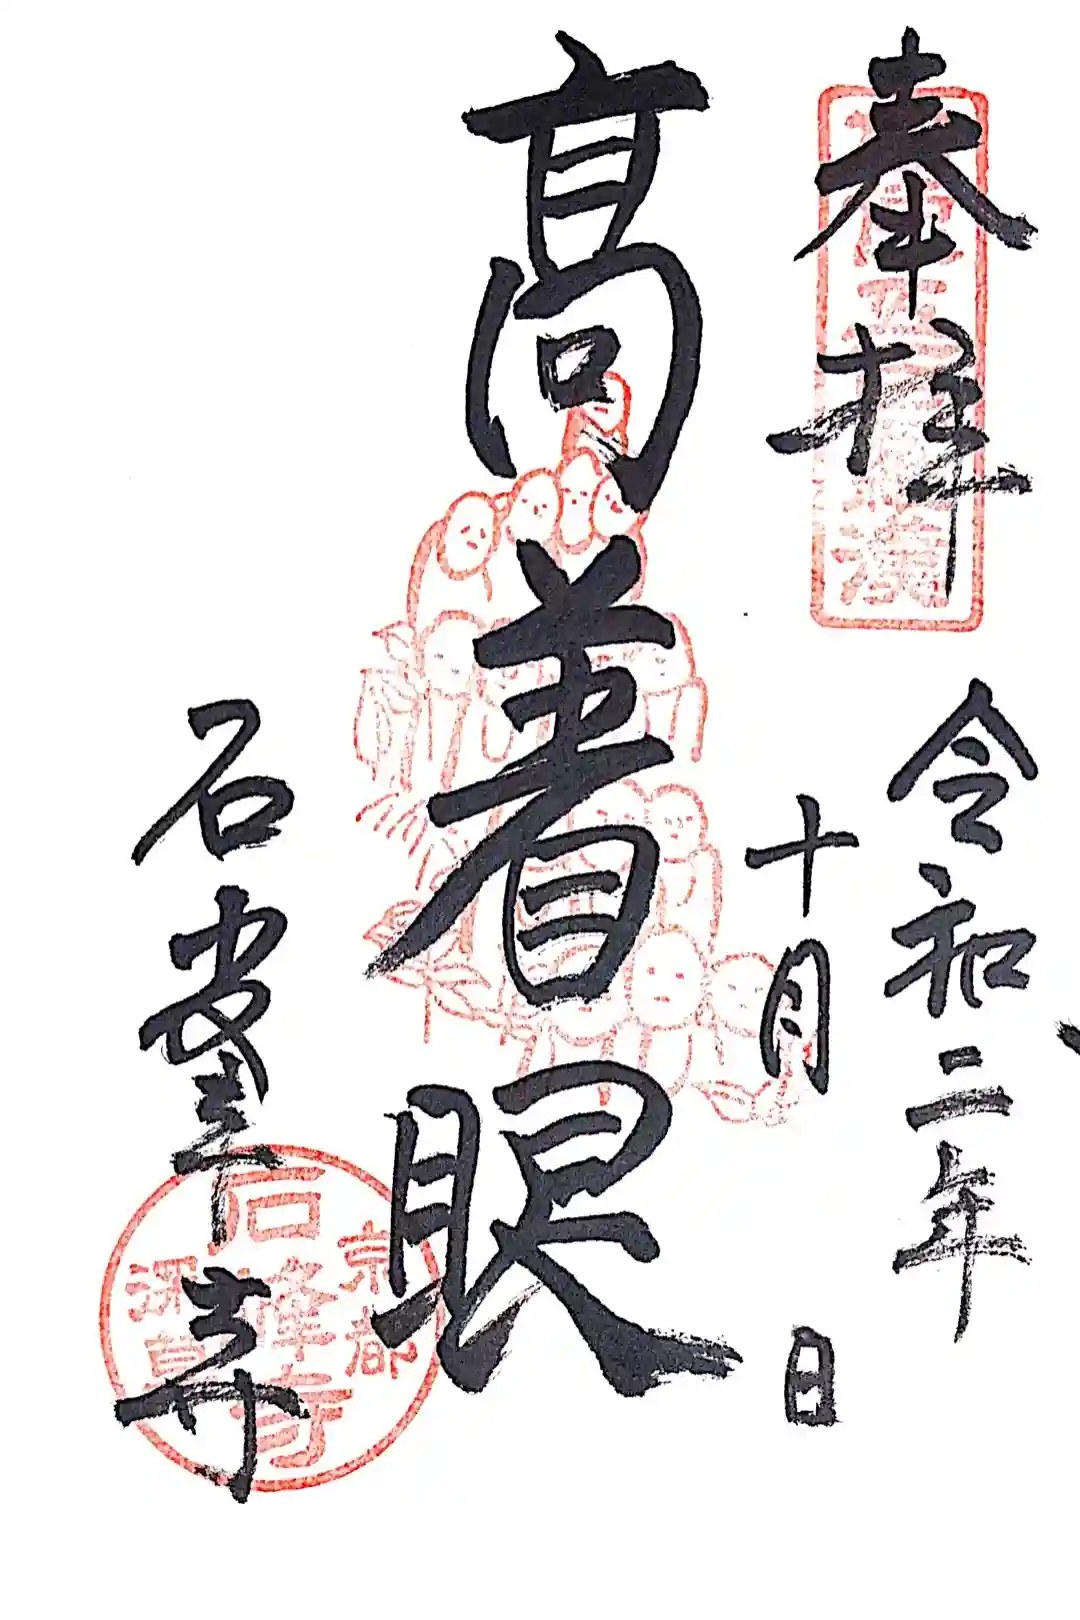 奉拝
令和二年
十月 日
高着眼
石峯寺
京都
石峰寺
深草